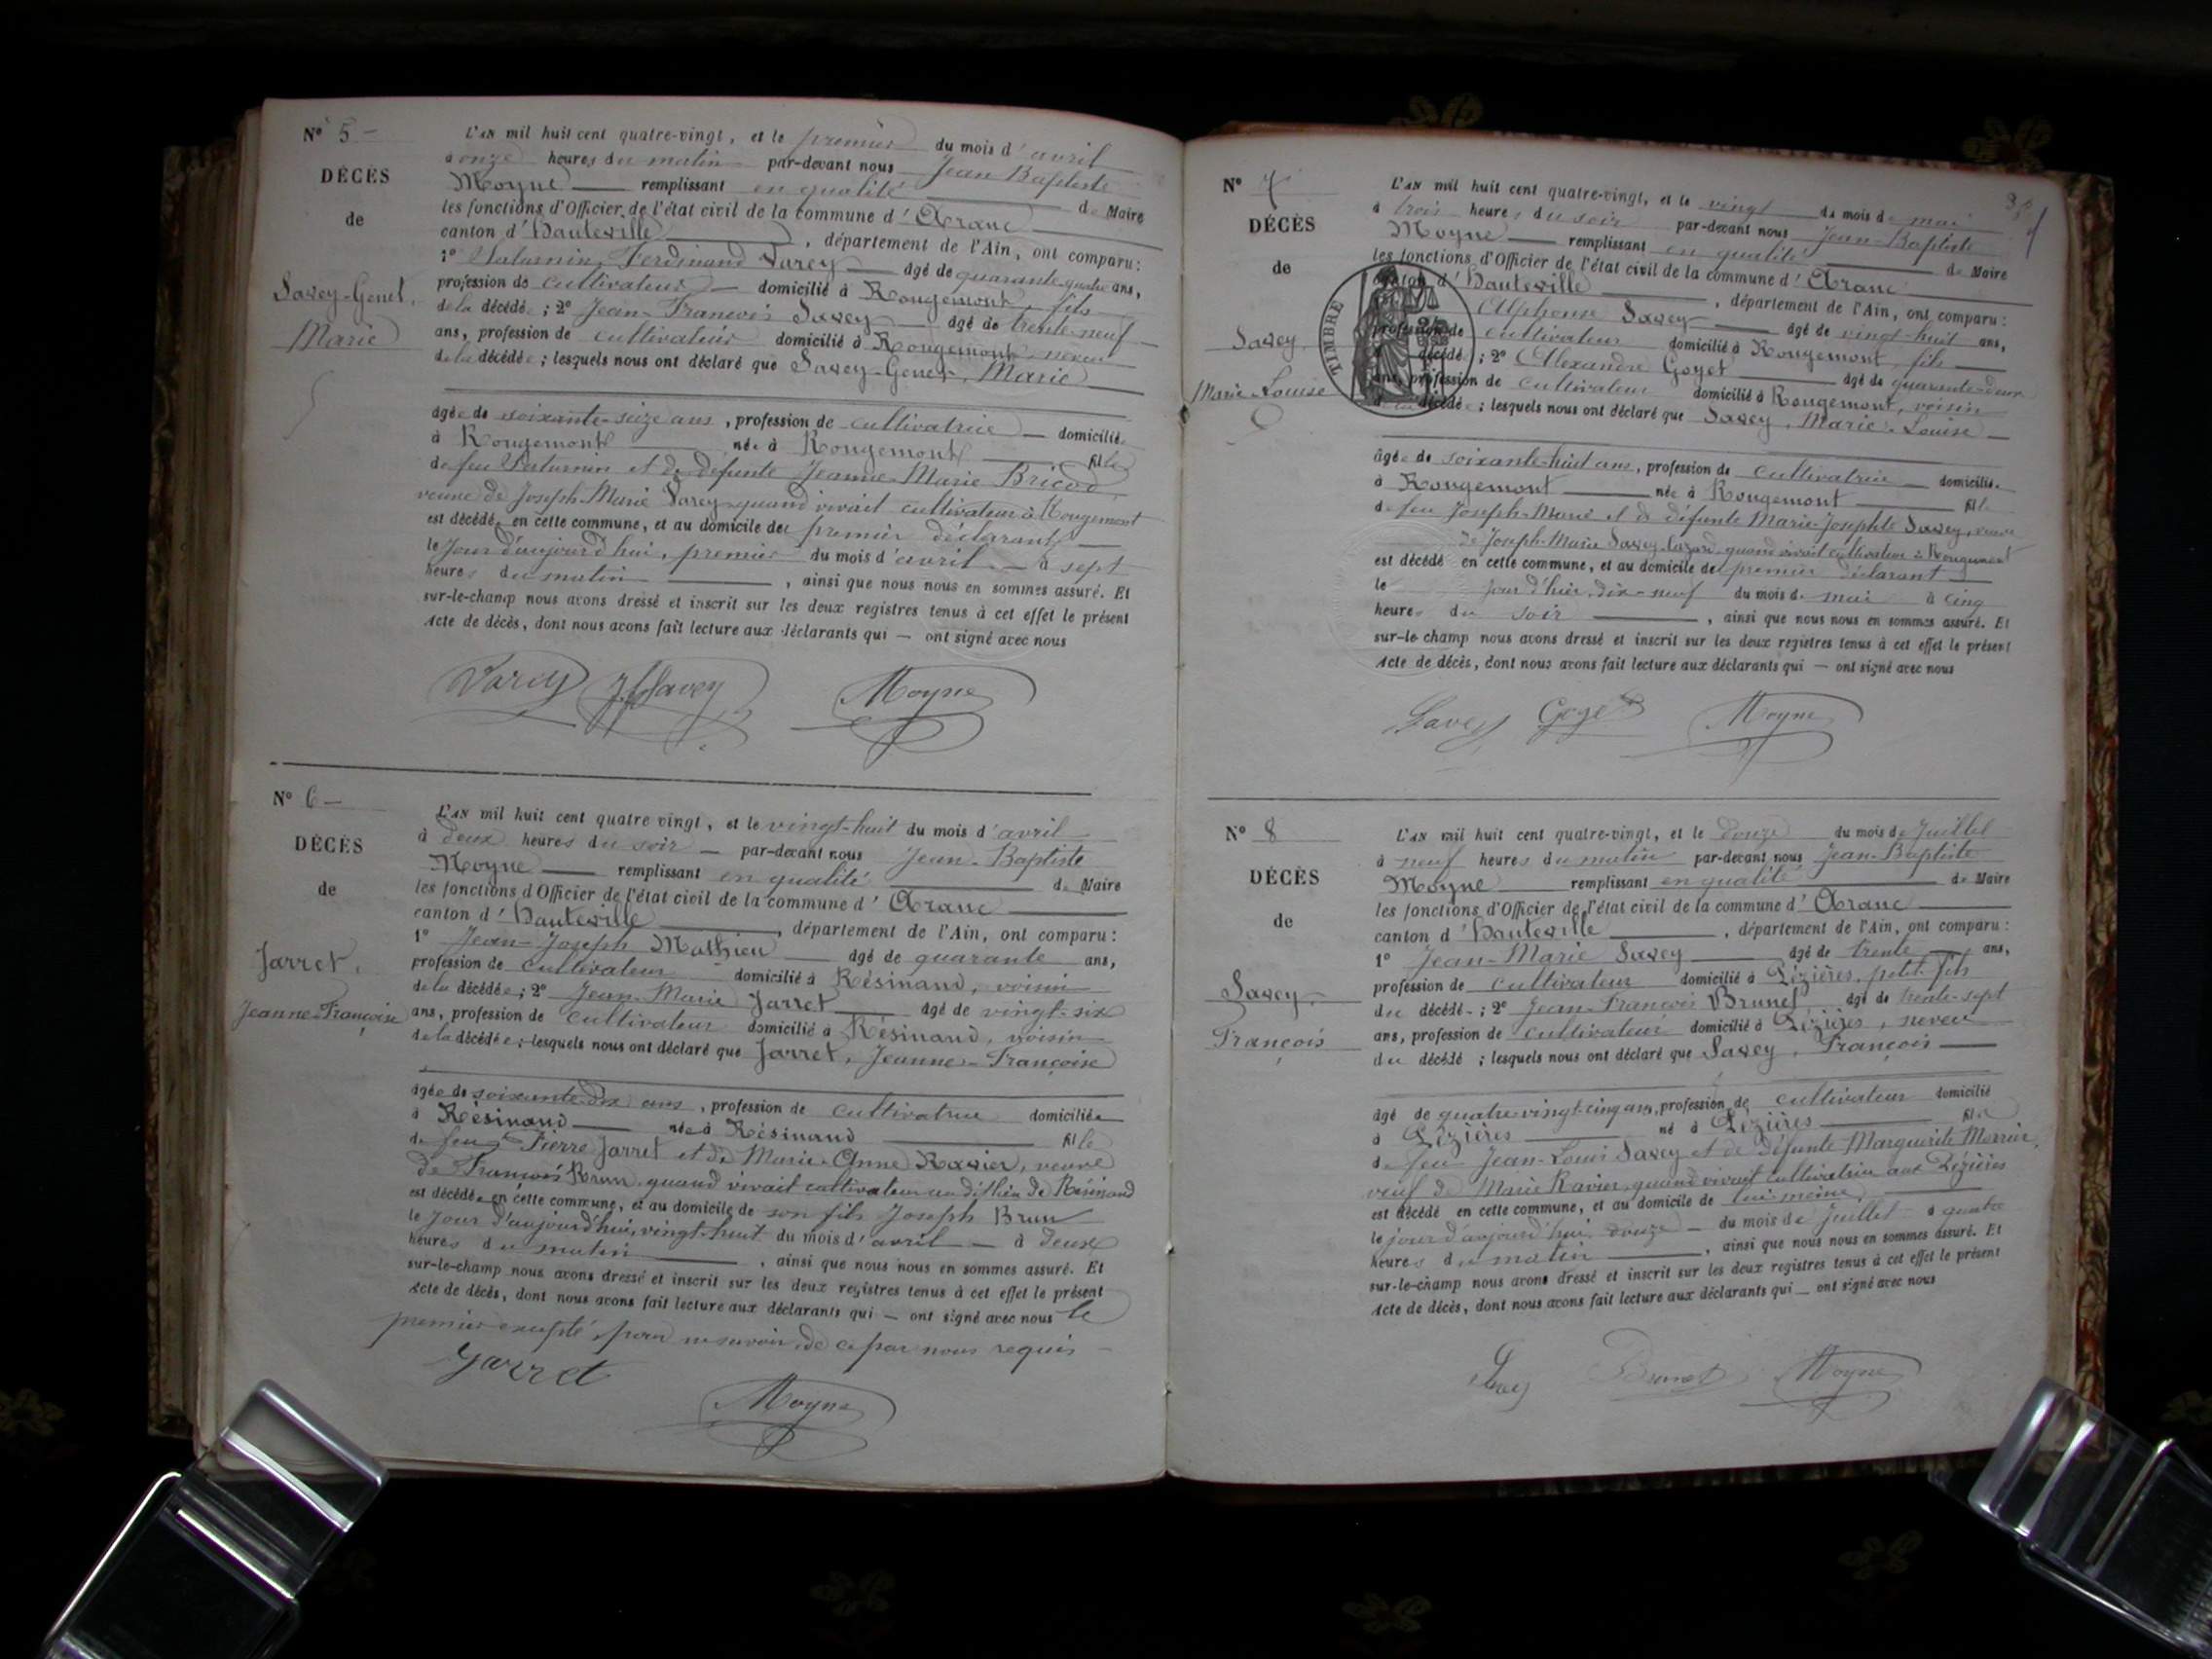 Nº 5 -
DÉCÈS
de
Savey-Genet,
Marie
L'AN mil huit cent quatre-vingt, et le premier du mois d'avril
à onze heures du matin par-devant nous Jean Baptiste
Moyne remplissant en qualité de Maire
les fonctions d'Officier de l'état civil de la commune d'Aranc
canton d'Hauteville, département de l'Ain, ont comparu:
1º Saturnin Ferdinand Varey âgé de quarante-quatre ans,
profession de cultivateur domicilié à Rougemont fils
de la décédée; 2º Jean-François Savey âgé de trente-neuf
ans, profession de cultivateur domicilié à Rougemont, neveu
de la décédée; lesquels nous ont déclaré que Savey-Genet, Marie
âgée de soixante-seize ans, profession de cultivatrice domiciliée
à Rougemont née à Rougemont fille
de feu Saturnin et de défunte Jeanne-Marie Bricod,
veuve de Joseph-Marie Varey quand vivait cultivateur à Rougemont
est décédée en cette commune, et au domicile de premier déclarant
le jour d'aujourd'hui, premier du mois d'avril à sept
heures du matin, ainsi que nous nous en sommes assuré. Et
sur-le-champ nous avons dressé et inscrit sur les deux registres tenus à cet effet le présent
Acte de décès, dont nous avons fait lecture aux déclarants qui — ont signé avec nous
Varey J F Savey Moyne
Nº 6 -
DÉCÈS
de
Jarret,
Jeanne-Françoise
L'AN mil huit cent quatre vingt, et le vingt-huit du mois d'avril
à deux heures du soir par-devant nous Jean-Baptiste
Moyne remplissant en qualité de Maire
les fonctions d'Officier de l'état civil de la commune d'Aranc
canton d'Hauteville, département de l'Ain, ont comparu:
1º Jean-Joseph Mathieu âgé de quarante ans,
profession de cultivateur domicilié à Résinand, voisin
de la décédée; 2º Jean-Marie Jarret âgé de vingt-six
ans, profession de cultivateur domicilié à Résinand, voisin
de la décédée; lesquels nous ont déclaré que Jarret, Jeanne-Françoise
âgée de soixante-dix ans, profession de cultivatrice domiciliée
à Résinand née à Résinand fille
de feu Pierre Jarret et de Marie-Anne Ravier, veuve
de François Brun quand vivait cultivateur au dit lieu de Résinand
est décédée en cette commune, et au domicile de son fils Joseph Brun
le jour d'aujourd'hui, vingt-huit du mois d'avril à deux
heures du matin, ainsi que nous nous en sommes assuré. Et
sur-le-champ nous avons dressé et inscrit sur les deux registres tenus à cet effet le présent
Acte de décès, dont nous avons fait lecture aux déclarants qui — ont signé avec nous le
premier excepté pour ne savoir de ce par nous requis
Jarret
Moyne
Nº 7
DÉCÈS
de
Savey,
Marie-Louise
TIMBRE
L'AN mil huit cent quatre-vingt, et le vingt du mois de mai
à trois heures du soir par-devant nous Jean-Baptiste
Moyne remplissant en qualité de Maire
les fonctions d'Officier de l'état civil de la commune d'Aranc
canton d'Hauteville, département de l'Ain, ont comparu:
Alphonse Savey âgé de vingt-huit ans,
profession de cultivateur domicilié à Rougemont, fils
décédé; 2º Alexandre Goyet âgé de quarante-deux
ans, profession de cultivateur domicilié à Rougemont, voisin
de la décédée; lesquels nous ont déclaré que Savey, Marie-Louise
âgée de soixante-huit ans, profession de cultivatrice domiciliée
à Rougemont née à Rougemont fille
de feu Joseph-Marie et de défunte Marie-Josephte Savey, veuve
de Joseph-Marie Savey quand vivait cultivateur à Rougemont
est décédé en cette commune, et au domicile de premier déclarant
le jour d'hier, dix-neuf du mois de mai à cinq
heures du soir, ainsi que nous nous en sommes assuré. Et
sur-le champ nous avons dressé et inscrit sur les deux registres tenus à cet effet le présent
Acte de décès, dont nous avons fait lecture aux déclarants qui — ont signé avec nous
Savey Goyet Moyne
Nº 8
DÉCÈS
de
Savey,
François
L'AN mil huit cent quatre-vingt, et le douze du mois de Juillet
à neuf heures du matin par-devant nous Jean-Baptiste
Moyne remplissant en qualité de Maire
les fonctions d'Officier de l'état civil de la commune d'Aranc
canton d'Hauteville, département de l'Ain, ont comparu:
1º Jean-Marie Savey âgé de trente ans,
profession de cultivateur domicilié à Pézières, petit-fils
du décédé; 2º Jean-François Brunet âgé de trente-sept
ans, profession de cultivateur domicilié à Pézières, neveu
du décédé; lesquels nous ont déclaré que Savey, François
âgé de quatre-vingt-cinq ans, profession de cultivateur domicilié
à Pézières né à Pézières fils
de feu Jean-Louis Savey et de défunte Marguerite
veuf de Marie Ravier, quand vivait cultivatrice aux Pézières
est décédé en cette commune, et au domicile de lui-même,
le jour d'aujourd'hui douze du mois de juillet à quatre
heures du matin, ainsi que nous nous en sommes assuré. Et
sur-le-champ nous avons dressé et inscrit sur les deux registres tenus à cet effet le présent
Acte de décès, dont nous avons fait lecture aux déclarants qui — ont signé avec nous
Savey Brunet Moyne